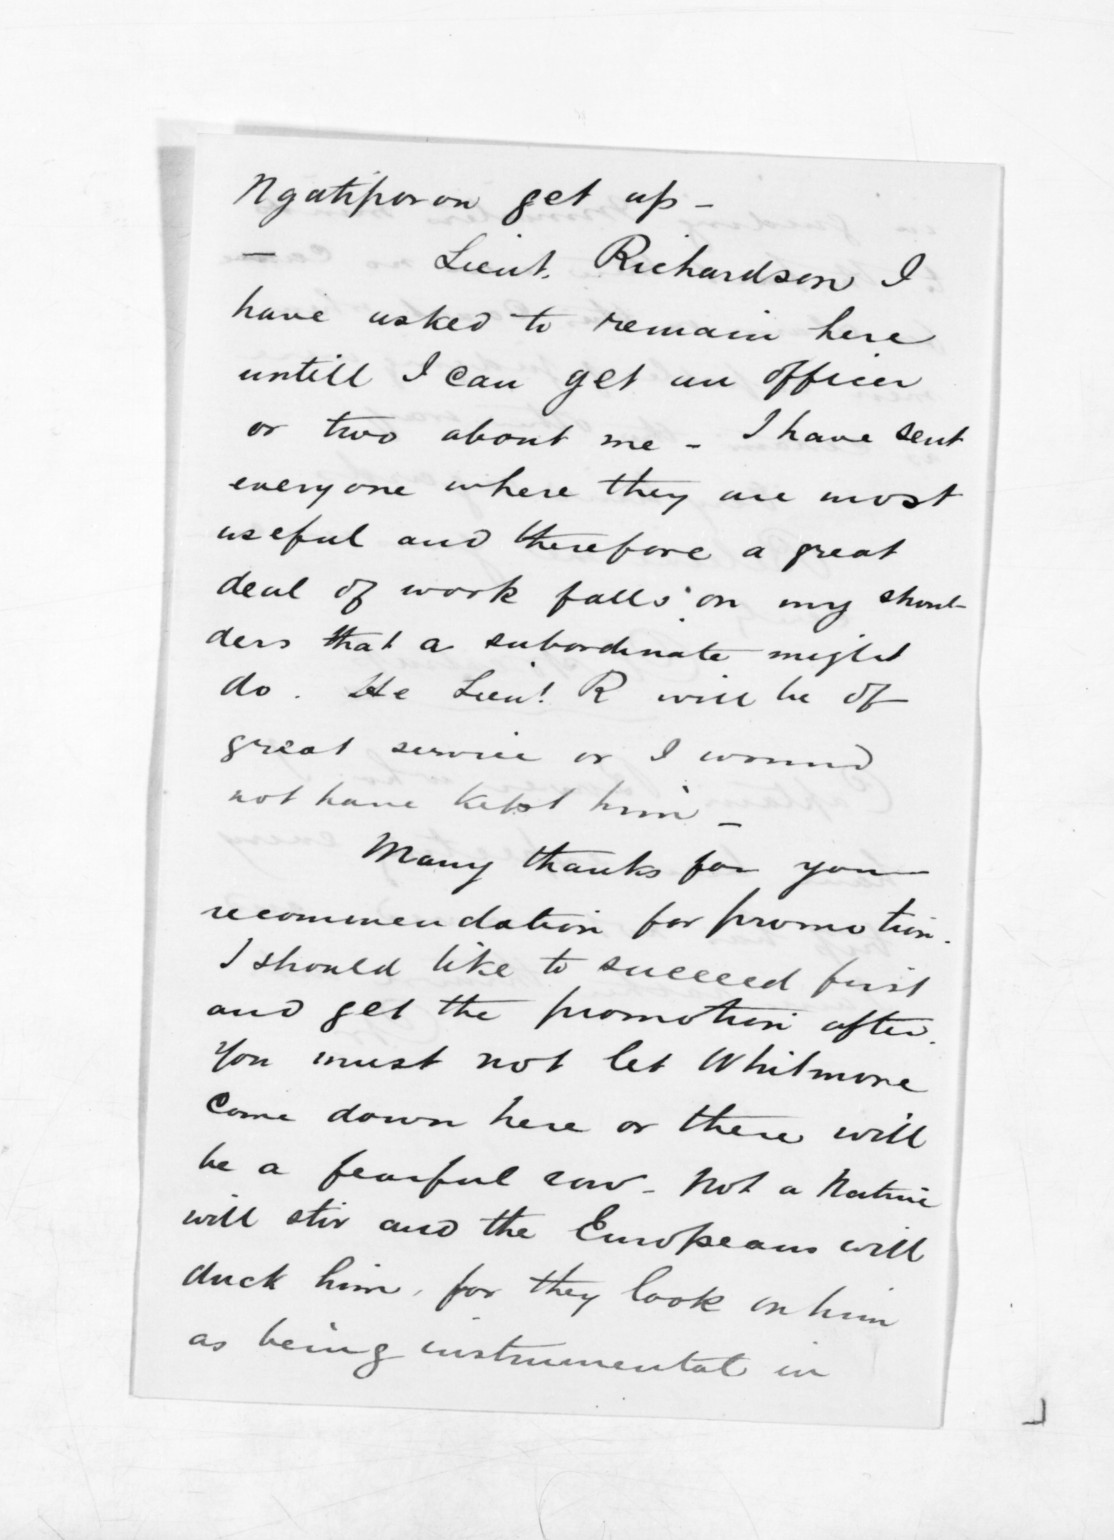 Ngatiporou get up -
- Lieut. Richardson I
have asked to remain here
untill I can get an officer
or two about me - I have sent
everyone where they are most
useful and therefore a great
deal of work falls on my shoul-
ders that a subordinate might
do. He Lieut. R will be of
great service or I would
not have kept him -
Many thanks for your
recommendation for promotion.
I should like to succeed first
and get the promotion after.
You must not let Whitmore
come down here or there will
be a fearful row - Not a Native
will stir and the Europeans will
duck him, for they look on him
as being instrumental in